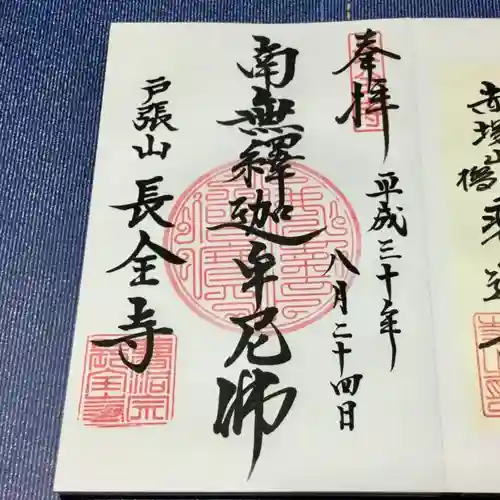 赤塚山
奉拝
平成三十年
八月二十四日
南無釋迦牟尼佛
戸張山
長全寺